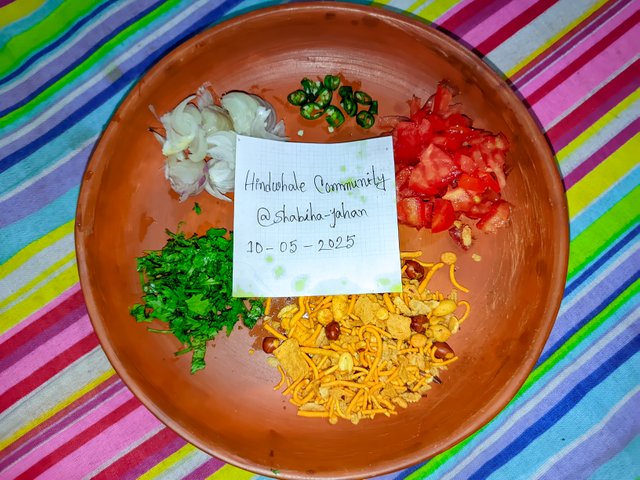 Hindwhale Community
@shabiha-jahan
10-05-2025